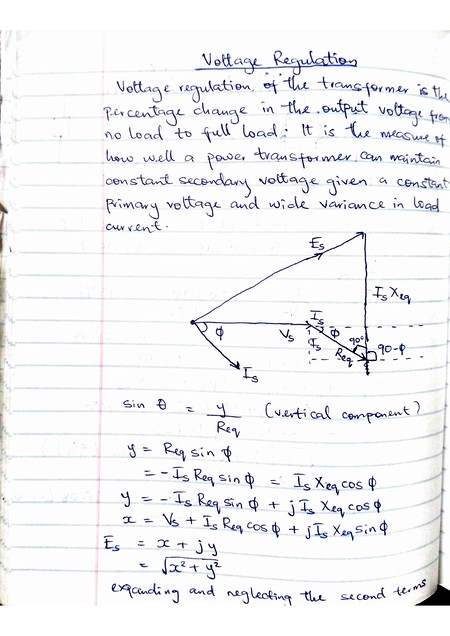 Voltage Regulation
Voltage regulation of the transformer is the
percentage change in the output voltage from
no load to full load. It is the measure of
how well a power transformer can maintain
constant secondary voltage given a constant
primary voltage and wide variance in load
current.
Es
Is Xeq
Is
ϕ
Vs
ϕ
Is
90°
Req
90-ϕ
Is
sin θ = y/Req (vertical component)
y = Req sin ϕ
= -Is Req sin ϕ = Is Xeq cos ϕ
y = -Is Req sin ϕ + jIs Xeq cos ϕ
x = Vs + Is Req cos ϕ + jIs Xeq sin ϕ
Es = x + jy
= √x² + y²
expanding and neglecting the second terms